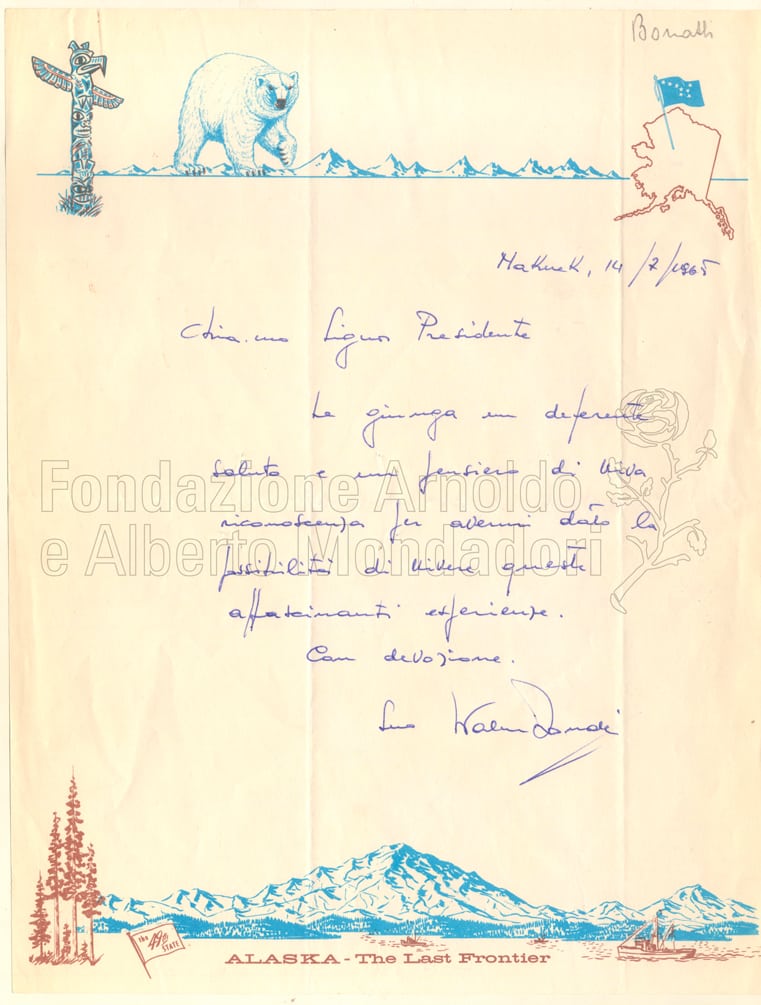 Bonatti
Naknek, 14/7/1965
Chia.mo Signor Presidente
Le giunga un deferente
saluto e un pensiero di viva
riconoscenza per avermi dato la
possibilità di vivere queste
affascinanti esperienze.
Con devozione.
Suo Walter Bonatti
Fondazione Arnoldo
e Alberto Mondadori
the 49th STATE
ALASKA - The Last Frontier